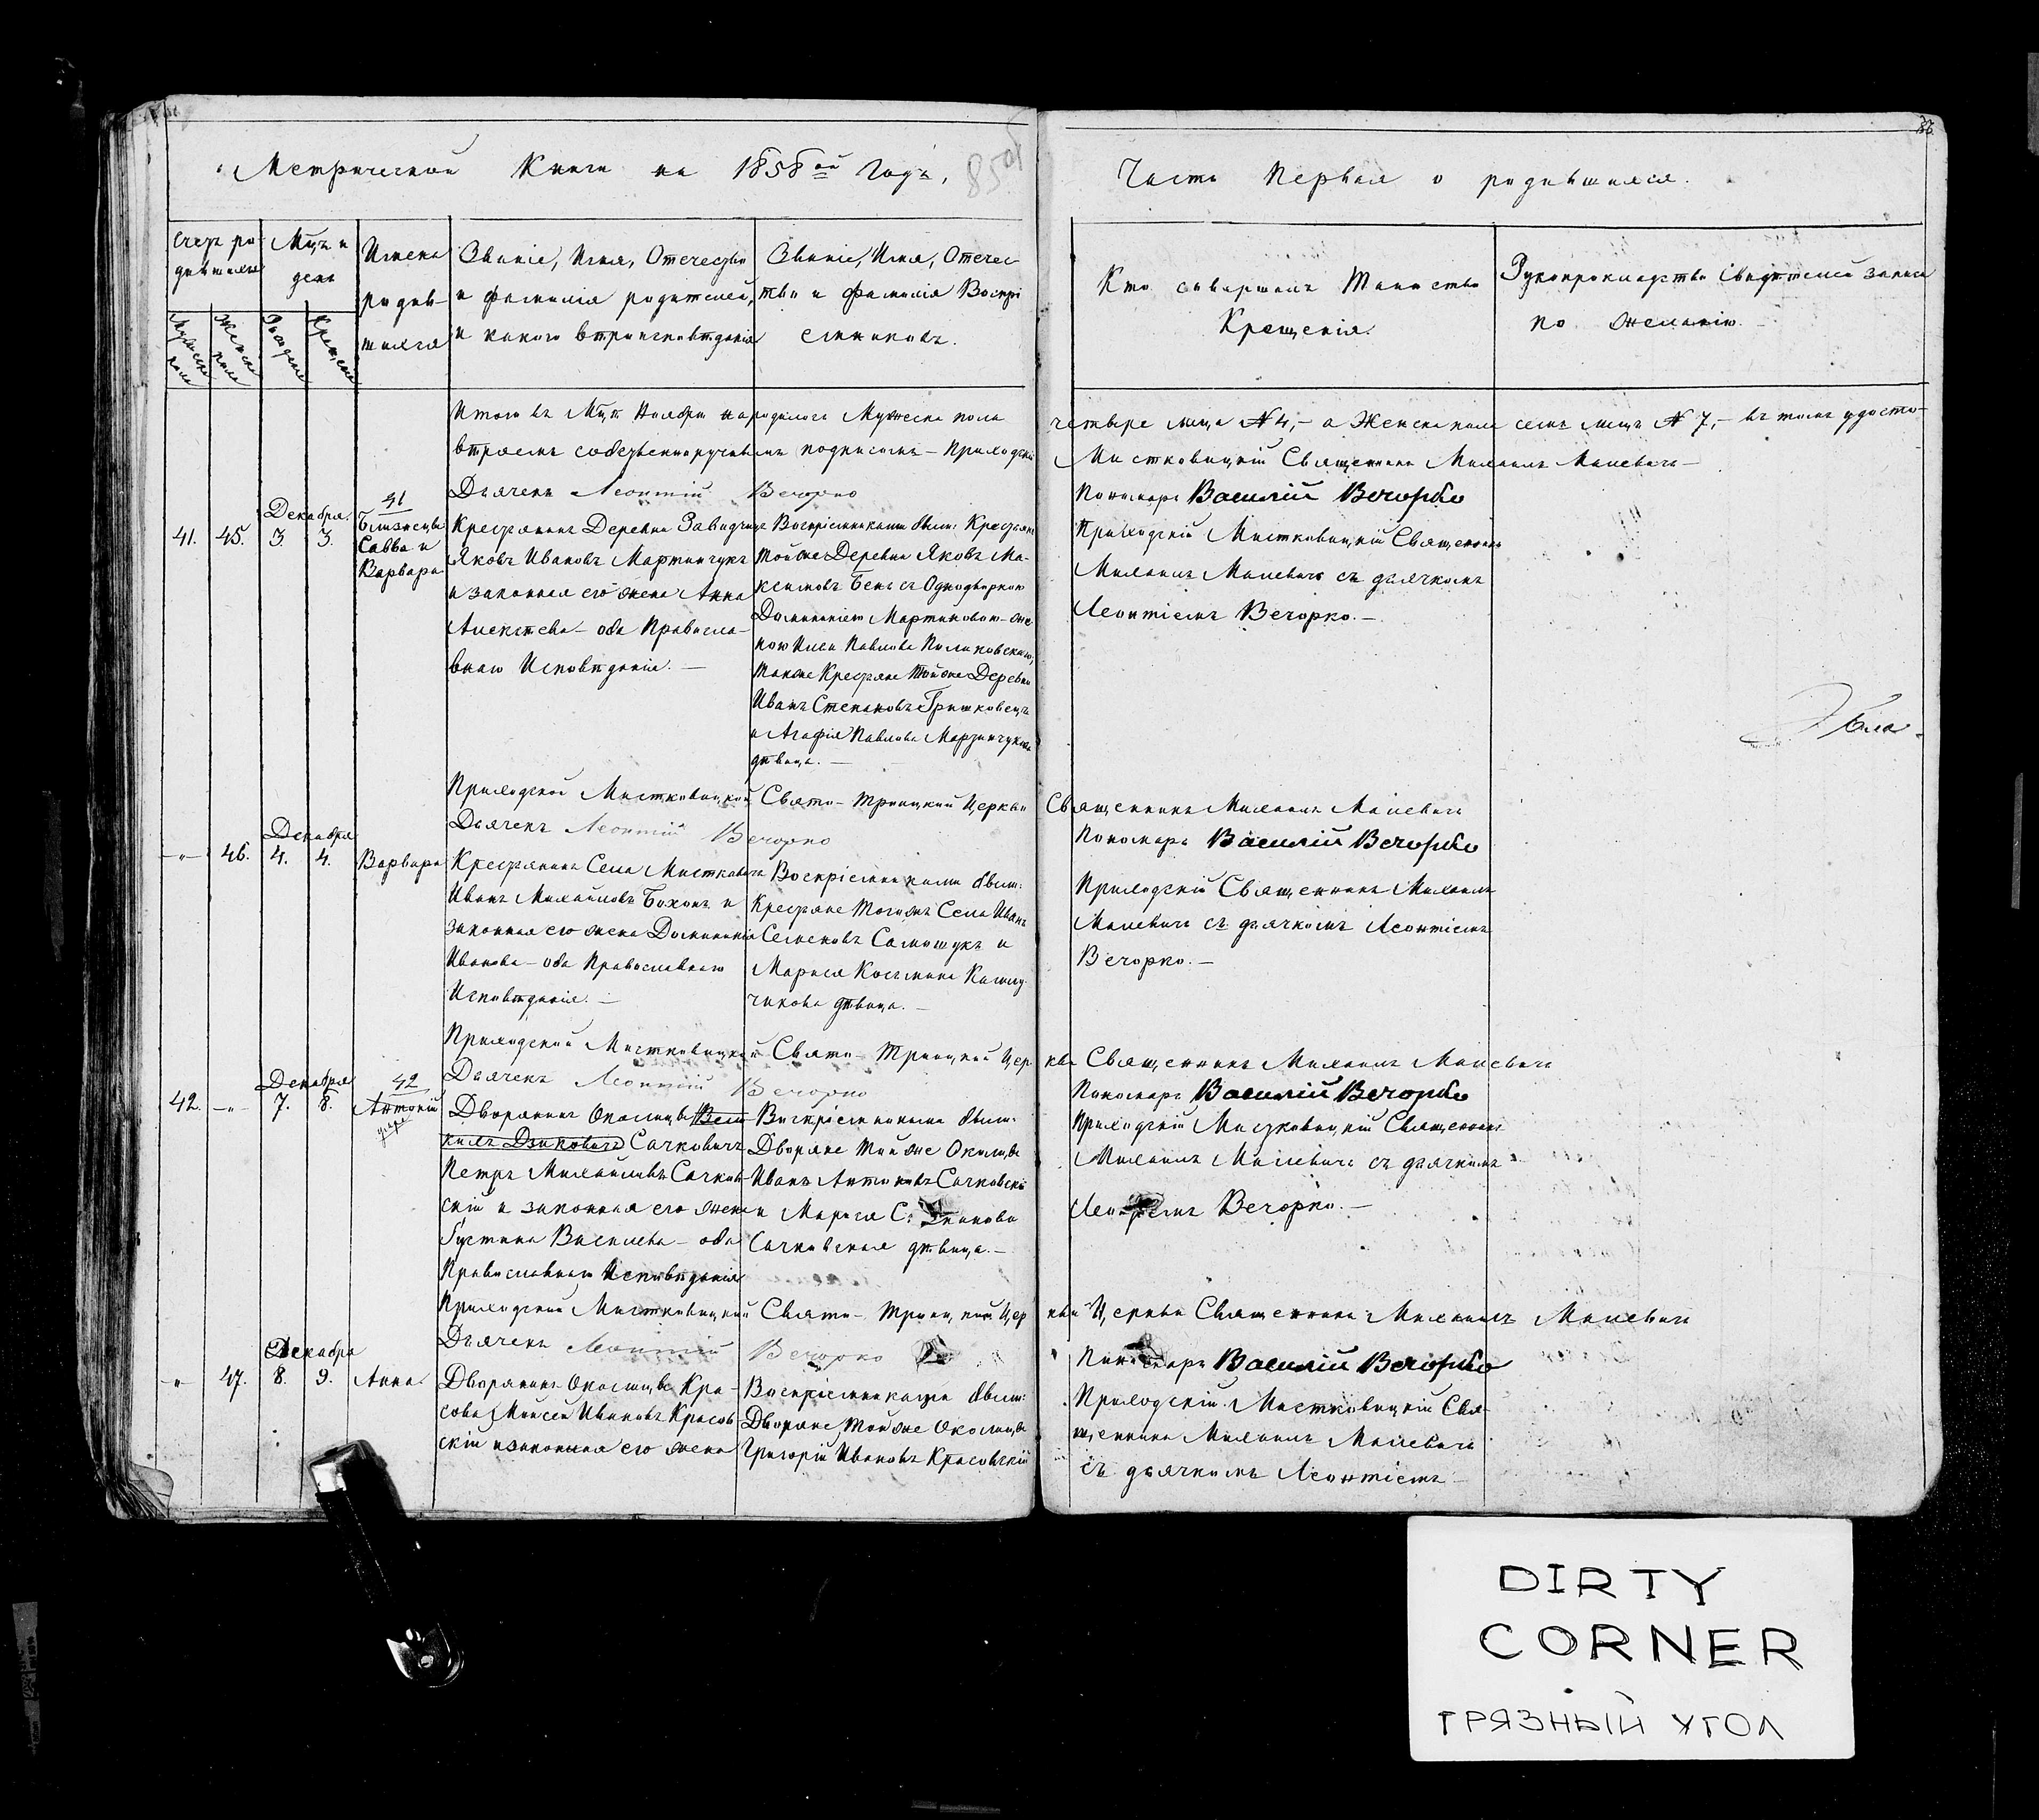 Метрической Книги на 1858ой Годъ,
Часть Первая о родившихся.
Счетъ ро-
дившихся
Мцъ и
день
Имена
родив-
шихся
Званіе, Имя, Отечество
и фамилія родителей,
и какого вѣроисповѣданія
Званіе, Имя, Отечес-
тво и фамилія Воспрі
емниковъ.
Кто совершалъ Таинство
Крещенія.
Рукоприкладство Свидѣтелей записи
по желанію.
Мужеска
пола
Женска
пола
Рожденіе
Крещеніе
Итого въ Мцѣ Ноябрѣ народилось Мужеска пола четыре лица № 4,- а Женска пола семь лицъ № 7,- въ томъ удосто-
вѣряемъ собственноручнымъ подписомъ - Приходскій Мистковицкій Священникъ Михаилъ Малевичъ -
Дьячекъ Леонтій Вечорко
Пономарь Василій Вечорко
41. 45.
Декабря.
3. 3.
41
Близнецы
Савва и
Варвара
Крестьянинъ Деревни Завидчицъ
Яковъ Ивановъ Мартинчукъ
и законная его жена Анна
Алексѣева - оба Правосла-
внаго Исповѣданія. -
Воспріемниками были: Крестьяне
той же Деревни Яковъ Ма-
ксимовъ Бень съ Однодворкою
Домникіею Мартиновою - же-
ною Ильи Павлова
также Крестьяне той же Деревни
Иванъ Степановъ Гришковецъ
и Агафія Павлова Мартинчукова
дѣвица. -
Приходскій Мистковицкій Священникъ
Михаилъ Малевичъ съ дьячкомъ
Леонтіемъ Вечорко. -
Приходской Мистковицкой Свято-Троицкой Церкви Священникъ Михаилъ Малевичъ
Дьячекъ Леонтій Вечорко
Пономарь Василій Вечорко
-"- 46.
Декабря
4. 4.
Варвара
Крестьянинъ Села Мистковичъ
Иванъ Михайловъ Бохонъ и
законная его жена Домникія
Иванова - оба Православнаго
Исповѣданія. -
Воспріемниками были:
Крестьяне тогожъ Села Иванъ
Семеновъ Самошукъ и
Марися Космина
чикова дѣвица. -
Приходскій Священникъ Михаилъ
Малевичъ съ дьячкомъ Леонтіемъ
Вечорко. -
Приходской Мистковицкой Свято-Троицкой Церкви Священникъ Михаилъ Малевичъ
Дьячекъ Леонтій Вечорко
Пономарь Василій Вечорко
42. -"-
Декабря
7. 8.
42
Антоній
умре
Дворянинъ Околицы
Сачковичъ
Петръ Михайловъ Сачков-
скій и законная его жена
Іустина Васильева - оба
Православнаго Исповѣданія
Воспріемниками были:
Дворяне той же Околицы
Иванъ Антоновъ Сачковскій
и Марися
Сачковская дѣвица. -
Приходскій Мистковицкій Священникъ
Михаилъ Малевичъ съ дьячкомъ
Леонтіемъ Вечорко. -
Приходской Мистковицкой Свято-Троицкой Церкви Церкви Священникъ Михаилъ Малевичъ
Дьячекъ Леонтій Вечорко
Пономарь Василій Вечорко
" 47.
Декабря
8. 9.
Анна
Дворянинъ Околицы Кра-
сова Моисей Ивановъ Красов-
скій и законная его жена
Воспріемниками были:
Дворяне той же Околицы
Григорій Ивановъ Красовскій
Приходскій Мистковицкій Свя-
щенникъ Михаилъ Малевичъ
съ дьячкомъ Леонтіемъ
DIRTY
CORNER
ГРЯЗНЫЙ УГОЛ